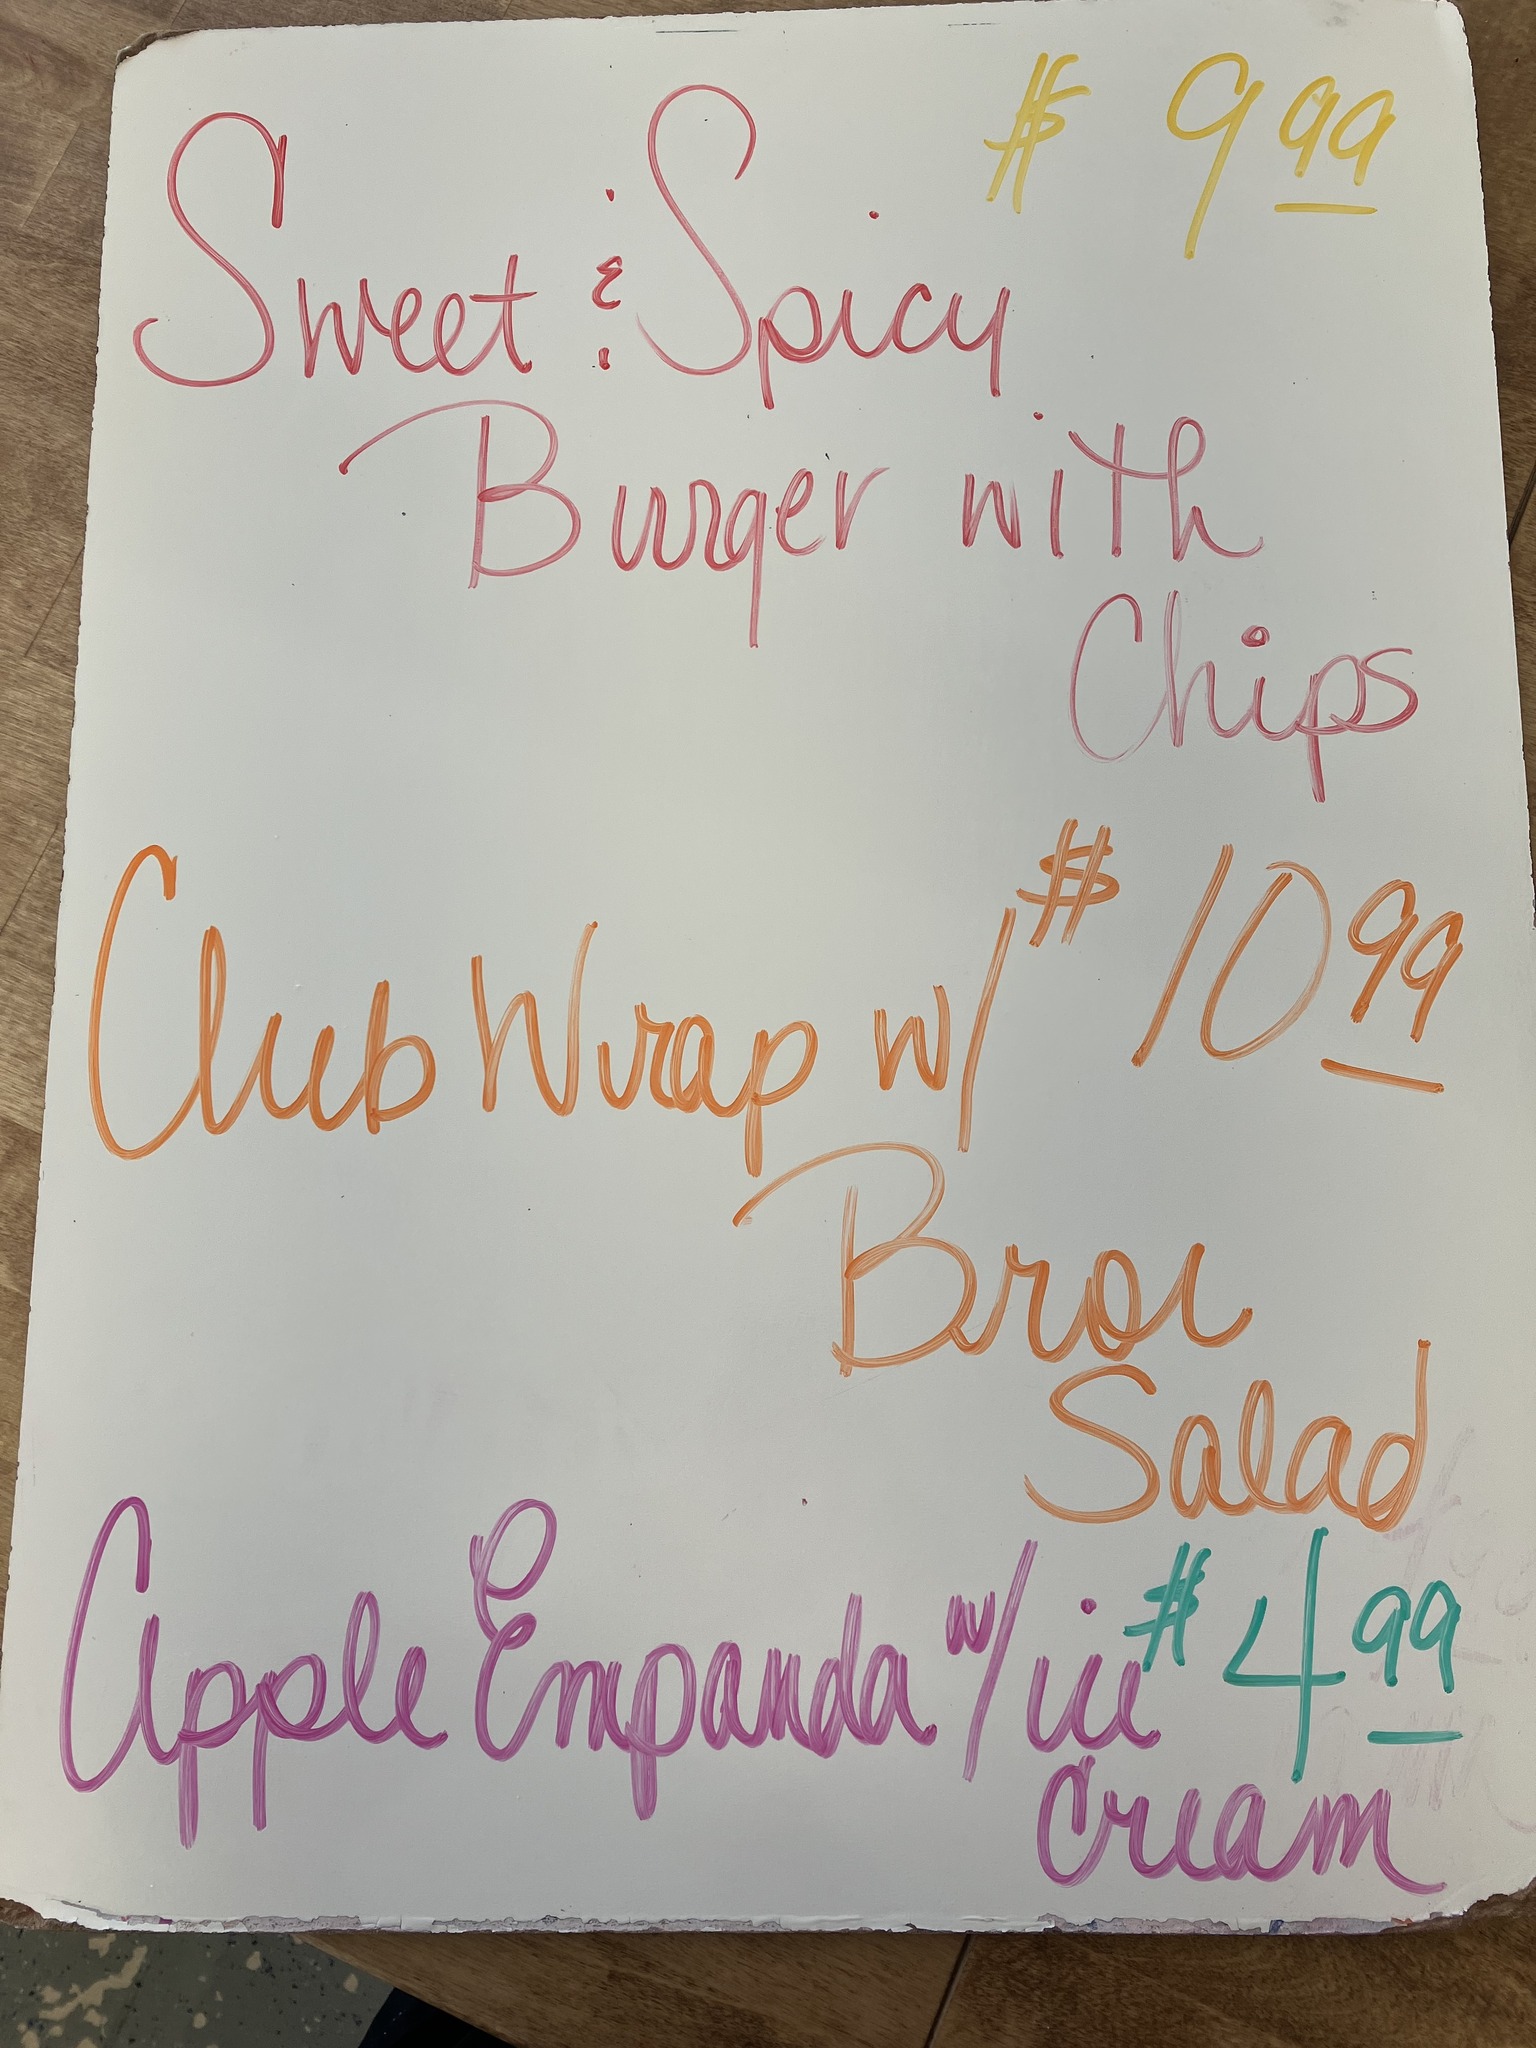 $ 9.99
Sweet & Spicy
Burger with
Chips
$ 10.99
Club Wrap w/
Broc
Salad
Apple Empanda w/ ice $ 4.99
cream